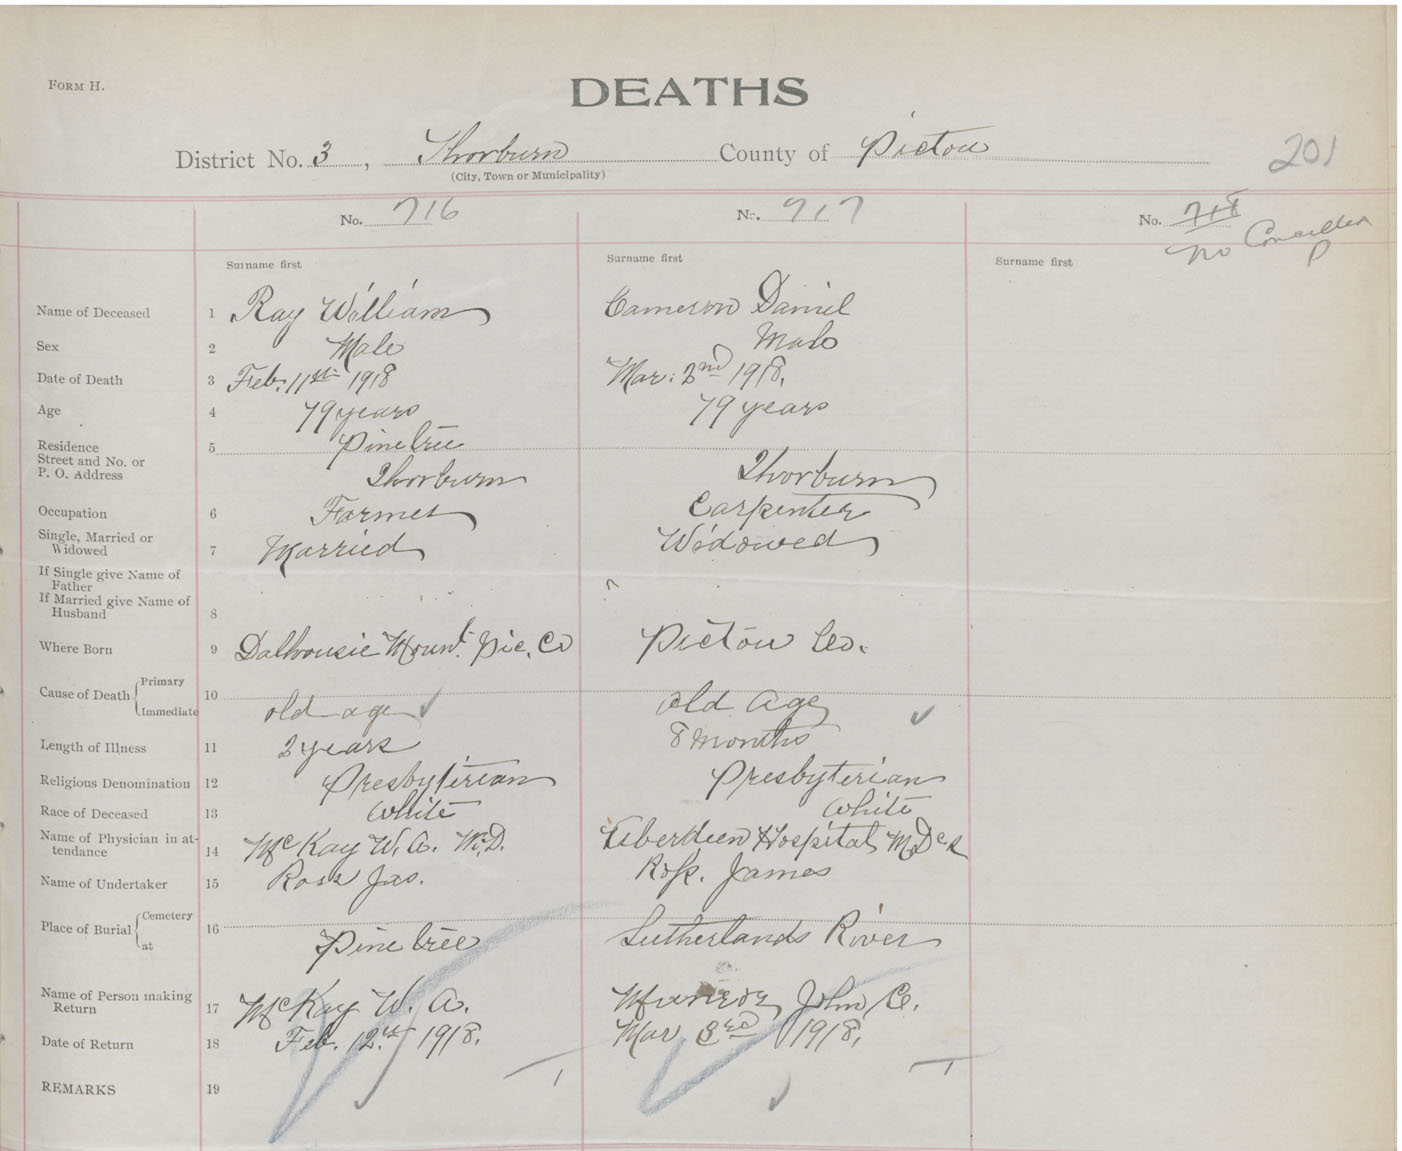 FORM H.
DEATHS
201
District No. 3, Thorburn County of Pictou
(City, Town or Municipality)
No. 716 No. 717 No. 718
No
Surname first Surname first Surname first
Name of Deceased 1 Ray William Cameron Daniel
Sex 2 Male Male
Date of Death 3 Feb. 11th 1918 Mar: 2nd 1918.
Age 4 79 years 79 years
Residence 5 Pine tree
Street and No. or
P. O. Address Thorburn Thorburn
Occupation 6 Farmer Carpenter
Single, Married or
Widowed 7 Married Widowed
If Single give Name of
Father
If Married give Name of
Husband 8
Where Born 9 Dalhousie Mount. Pic. Co Pictou Co.
Cause of Death Primary 10
Immediate old age old Age
Length of Illness 11 2 years 8 months
Religious Denomination 12 Presbyterian Presbyterian
Race of Deceased 13 White White
Name of Physician in at-
tendance 14 McKay W. A. M.D. Aberdeen Hospital
Name of Undertaker 15 Ross Jas. Ross. James
Place of Burial Cemetery 16
at Pine tree Sutherlands River
Name of Person making
Return 17 McKay W. A. Munroe, John C.
Date of Return 18 Feb. 12th 1918. Mar 3rd 1918.
REMARKS 19